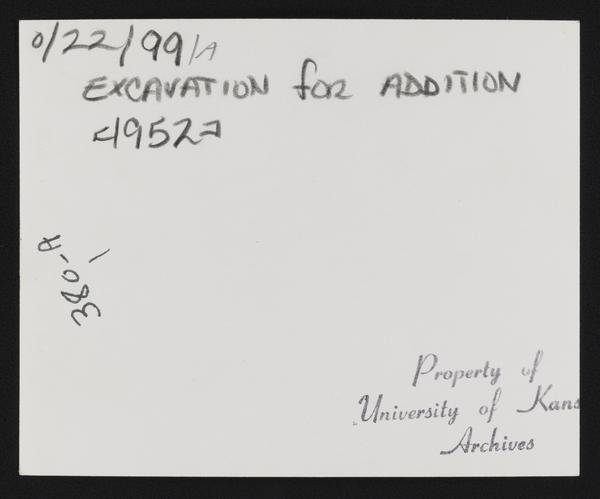 0/22/99/A
EXCAVATION for ADDITION
[1952]
380-A
Property of
University of Kans
Archives